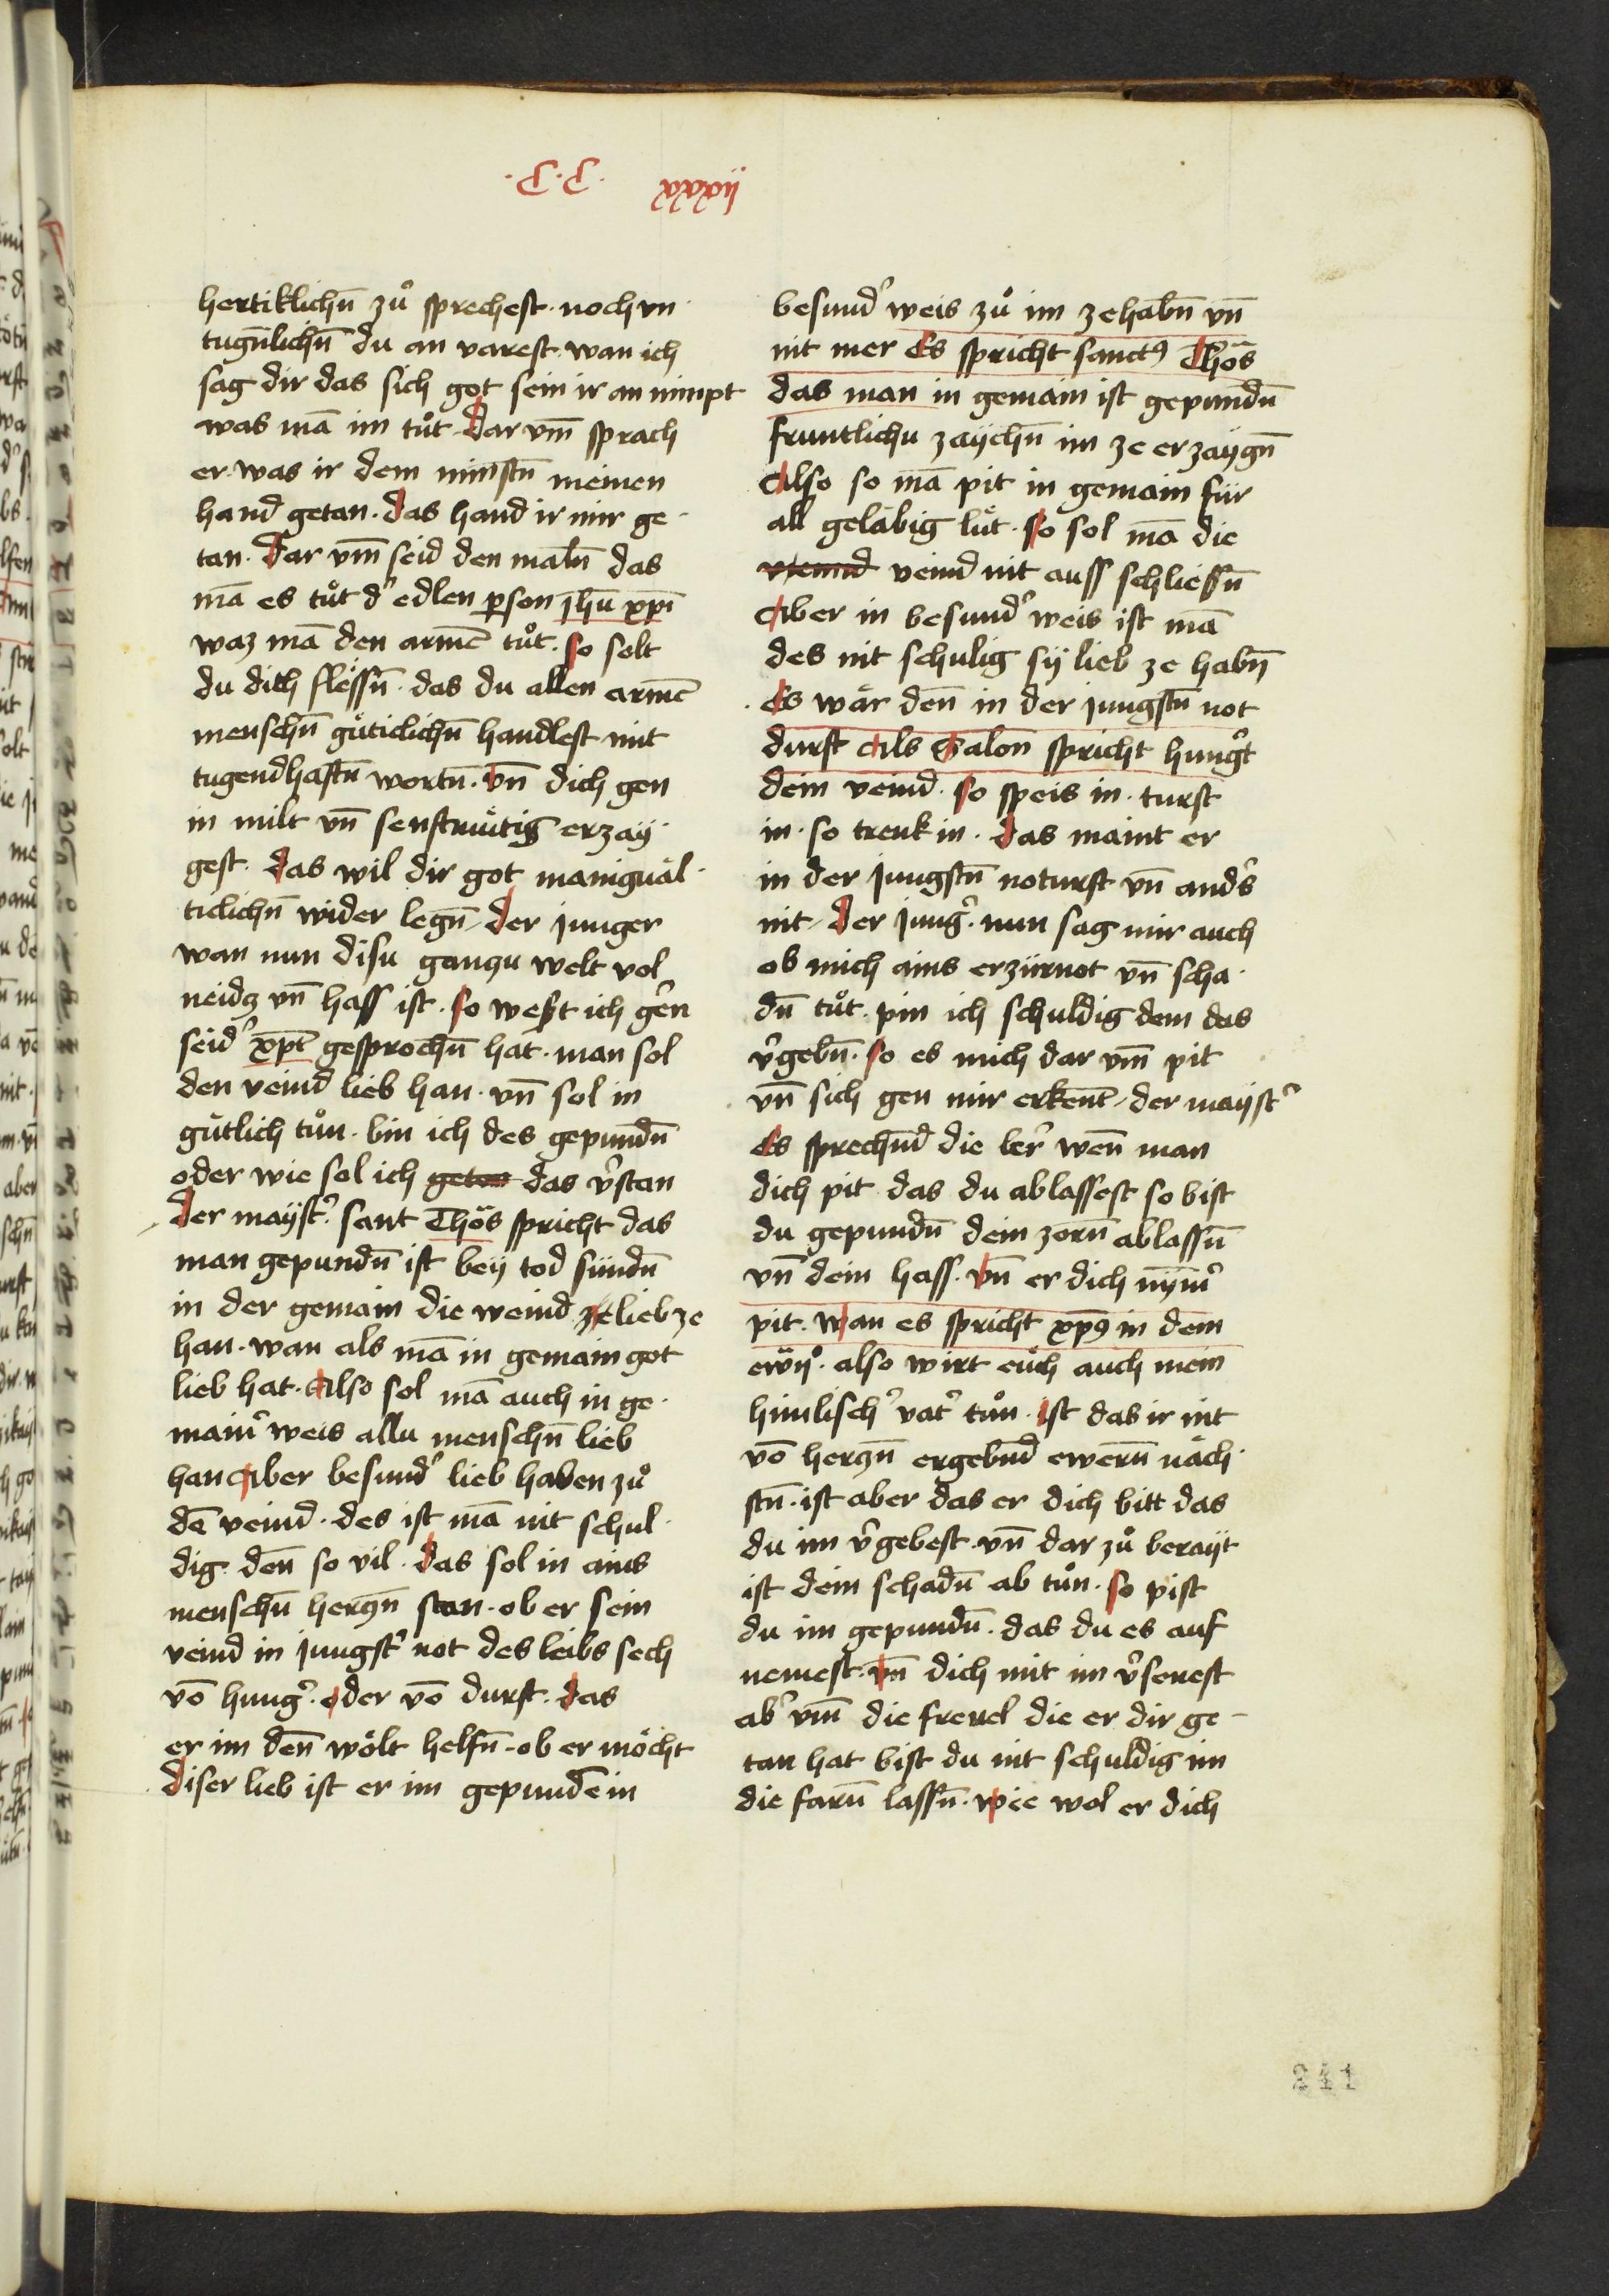 ·C·C· xxxxij
hertiklichn̄ zů sprechest · noch vn
tugn̄lichn̄ du an varest · wan ich
sag dir das sich got sein ir an nimpt
was mā im tůt · Dar vm̄ sprach
er · was ir dem minstn̄ meinen
hand getan · das hand ir mir ge
tan · Dar vm̄ seid den maln̄ das
mā es tůt dʾ edlen ꝑson jhū xp̄i
waz mā den armē tůt · so solt
du dich flëssn̄ · das du allen armē
menschn̄ gůticlichn̄ handlest mit
tugendhaftn̄ wortn̄ · vn̄ dich gen
in milt vn̄ senftmütig erzay
gest · das wil dir got manigual
ticlichn̄ wider legn̄ · der junger
wan nun disu ganczu welt vol
neidz vn̄ hass ist · so west ich gʾen
seidʾ xp̄t gesprochn̄ hat · man sol
den veind lieb han · vn̄ sol in
gütlich tůn · bin ich des gepundn̄
oder wie sol ich geton das vʾstan
der mayst̾ · sant Thōs spricht das
man gepundn̄ ist bey tod sündn̄
in der gemain die weind ze lieb ze
han · wan als mā in gemain got
lieb hat · Also sol mā auch in ge
mainʾ weis allu menschn̄ lieb
han Aber besundʾ lieb haben zů
dē veind · des ist mā nit schul
dig den̄ so vil · das sol in ains
menschn̄ herczn̄ stan · ob er sein
veind in jungstʾ not des leibs sech
vō hungʾ · oder vō durst · das
er im den̄ wölt helfn̄ · ob er möcht
diser lieb ist er im gepundē in
besundʾ weis zů im ze habn̄ vn̄
nit mer Es spricht sanctꝯ Thōs
das man in gemain ist gepundn̄
fruntlichu zaychn̄ im ze erzaygn̄
Also so mā pit in gemain für
all geläbig lüt · so sol mā die
veind nit auss schliessn̄
Aber in besundʾ weis ist mā
des nit schulig sÿ lieb ze habn̄
Es wär den̄ in der jungstn̄ not
durft Als Salon̄ spricht hungʾt
dein veind · so speis in · turst
in · so trenk in · das maint er
in der jungstn̄ noturft vn̄ andʾs
nit · der jungʾ · nun sag mir auch
ob mich ains erzürnot vn̄ scha
dn̄ tůt · pin ich schuldig dem das
vʾgebn̄ · so es mich dar vm̄ pit
vn̄ sich gen mir erkent̄ · der maystʾ
Es sprechn̄d die lerʾ wen̄ man
dich pit das du ablassest so bist
du gepundn̄ dein zorn̄ ablassn̄
vn̄ dein hass · vn̄ er dich nym̄ʾ
pit · wan es spricht xp̄ꝯ in dem
ewn̄° · also wirt eüch auch mein
himlischʾ vatʾ tůn · ist das ir nit
vō herczn̄ ergebnd̄ ewern̄ näch
stn̄ · ist aber das er dich bitt das
du im vʾgebest · vn̄ dar zů berayt
ist dein schadn̄ ab tůn · so pist
du im gepundn̄ · das du es auf
nemest · vn̄ dich mit im vʾsenest
abʾ vm̄ die freuel die er dir ge
tan hat bist du nit schuldig im
die farn̄ lassn̄ · wie wol er dich
241